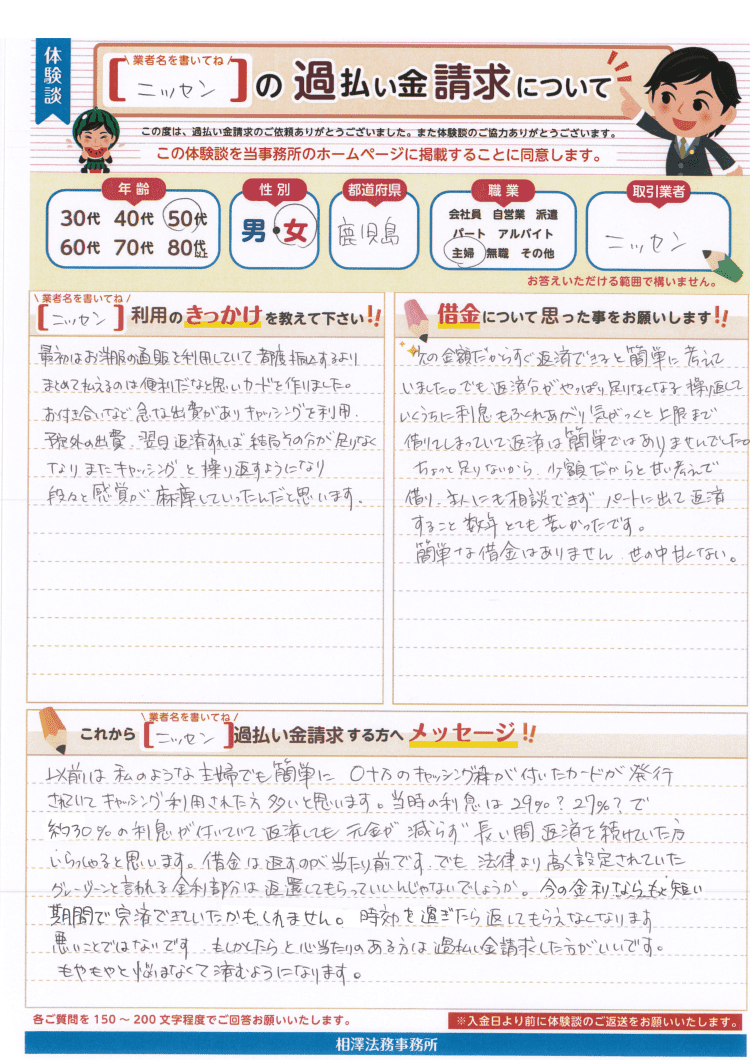 体験談
\ 業者名を書いてね /
[ニッセン]の過払い金請求について
この度は、過払い金請求のご依頼ありがとうございました。また体験談のご協力ありがとうございます。
この体験談を当事務所のホームページに掲載することに同意します。
年齢
30代 40代 50代
60代 70代 80代以上
性別
男・女
都道府県
鹿児島
職業
会社員 自営業 派遣
パート アルバイト
主婦 無職 その他
取引業者
ニッセン
お答えいただける範囲で構いません。
\ 業者名を書いてね /
[ニッセン]利用のきっかけを教えて下さい!!
最初はお洋服の通販を利用していて都度振込するより
まとめて払えるのは便利だなと思いカードを作りました。
お付き合いなど急な出費がありキャッシングを利用.
予定外の出費、翌月返済すれば結局その分が足りなく
なりまたキャッシングと繰り返すようになり
段々と感覚が麻痺していったんだと思います.
借金について思った事をお願いします!!
の金額だからすぐ返済できると簡単に考えて
いました。でも返済分がやっぱり足りなくなる繰り返して
いくうちに利息もふくれあがり気がつくと上限まで
借りてしまっていて返済は簡単ではありませんでした。
ちょっと足りないから、少額だからと甘い考えで
借り、主人にも相談できずパートに出て返済
すること数年とても苦しかったです。
簡単な借金はありません、世の中甘くない。
\ 業者名を書いてね /
これから[ニッセン]過払い金請求する方へメッセージ!!
以前は私のような主婦でも簡単に〇十万のキャッシング枠が付いたカードが発行
されていてキャッシング利用された方多いと思います。当時の利息は29%?27%?で
約30%の利息が付いていて返済しても元金が減らず長い間返済を続けていた方
いらっしゃると思います。借金は返すのが当たり前です、でも法律より高く設定されていた
グレーゾーンと言われる金利部分は返還してもらっていいんじゃないでしょうか。今の金利ならもっと短い
期間で完済できていたかもしれません。時効を過ぎたら返してもらえなくなります
悪いことではないです、もしかしたらと心当たりのある方は過払い金請求した方がいいです。
もやもやと悩まなくて済むようになります。
各ご質問を150〜200文字程度でご回答お願いいたします。
※入金日より前に体験談のご返送をお願いいたします。
相澤法務事務所